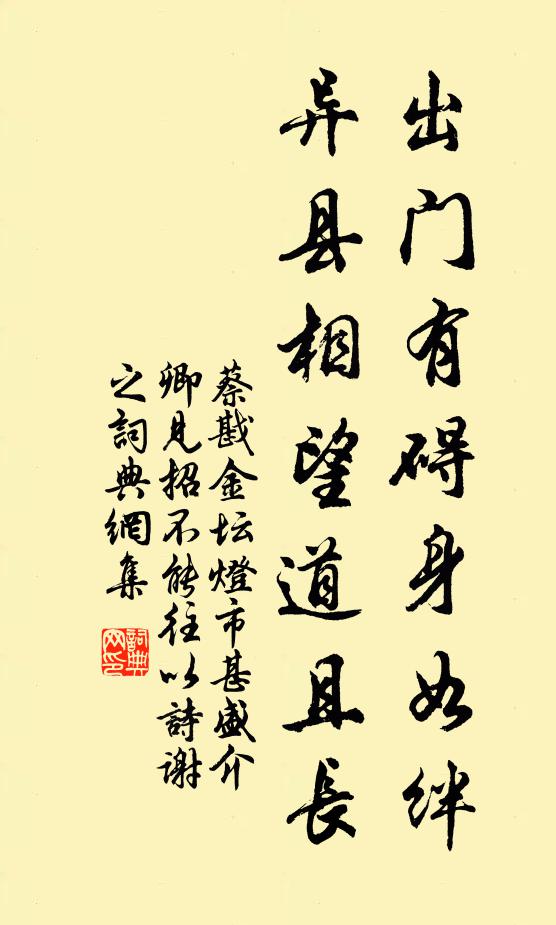 出门有碍身如绊
异县相望道且长
蔡戡金坛燈市甚盛介
卿見招不能往以詩谢
之詞典網集
詞典
网印